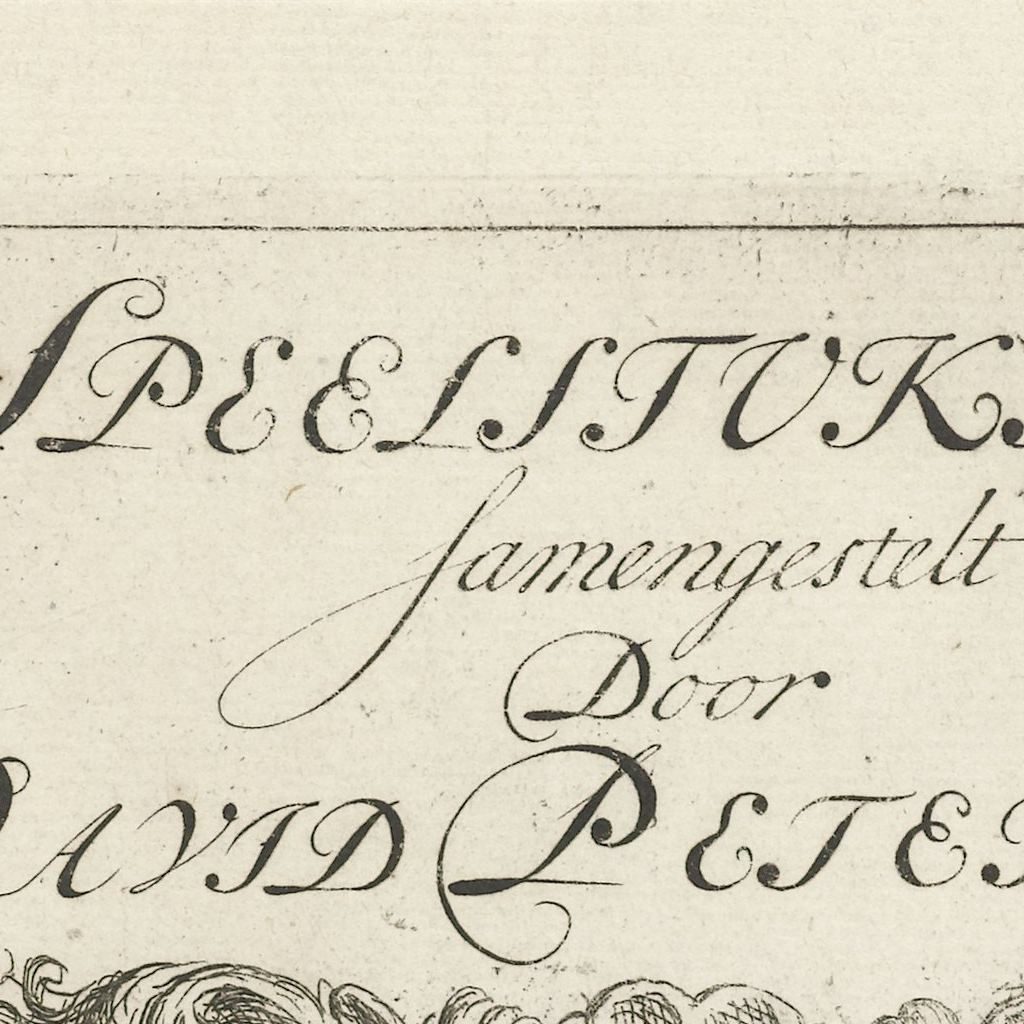 SPEELSTUK
samengestelt
Door
DAVID PETER